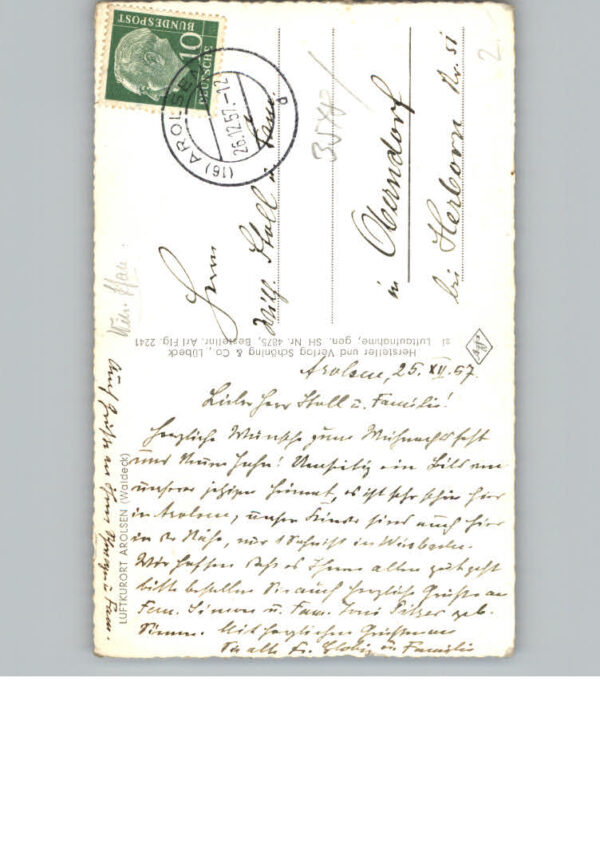 DEUTSCHE
BUNDESPOST
10
(16) AROLSEN
26.12.57.-12
a
Herrn
Wilh. Stoll u. Fam.
in Oberndorf
bei Herborn Nr. 51
2.
Hersteller und Verlag Schöning & Co., Lübeck
Luftaufnahme, gen. SH Nr. 4875, Bestellnr. Arl Flg. 2241
Agfa
LUFTKURORT AROLSEN (Waldeck)
Arolsen, 25. XII. 57.
Lieber Herr Stoll u. Familie!
Herzliche Wünsche zum Weihnachtsfest
und Neuen Jahr! Umseitig ein Bild von
unserer jetzigen Heimat, es ist sehr schön hier
in Arolsen, unsere Kinder sind auch hier
in der Nähe, nur in Wiesbaden.
Wir hoffen daß es Ihnen allen gut geht
bitte bestellen Sie auch herzliche Grüße an
Fam. Simon u. Fam. geb.
Simon. Mit herzlichen Grüßen
Familie
Auch Grüße an Herrn u. Fam.